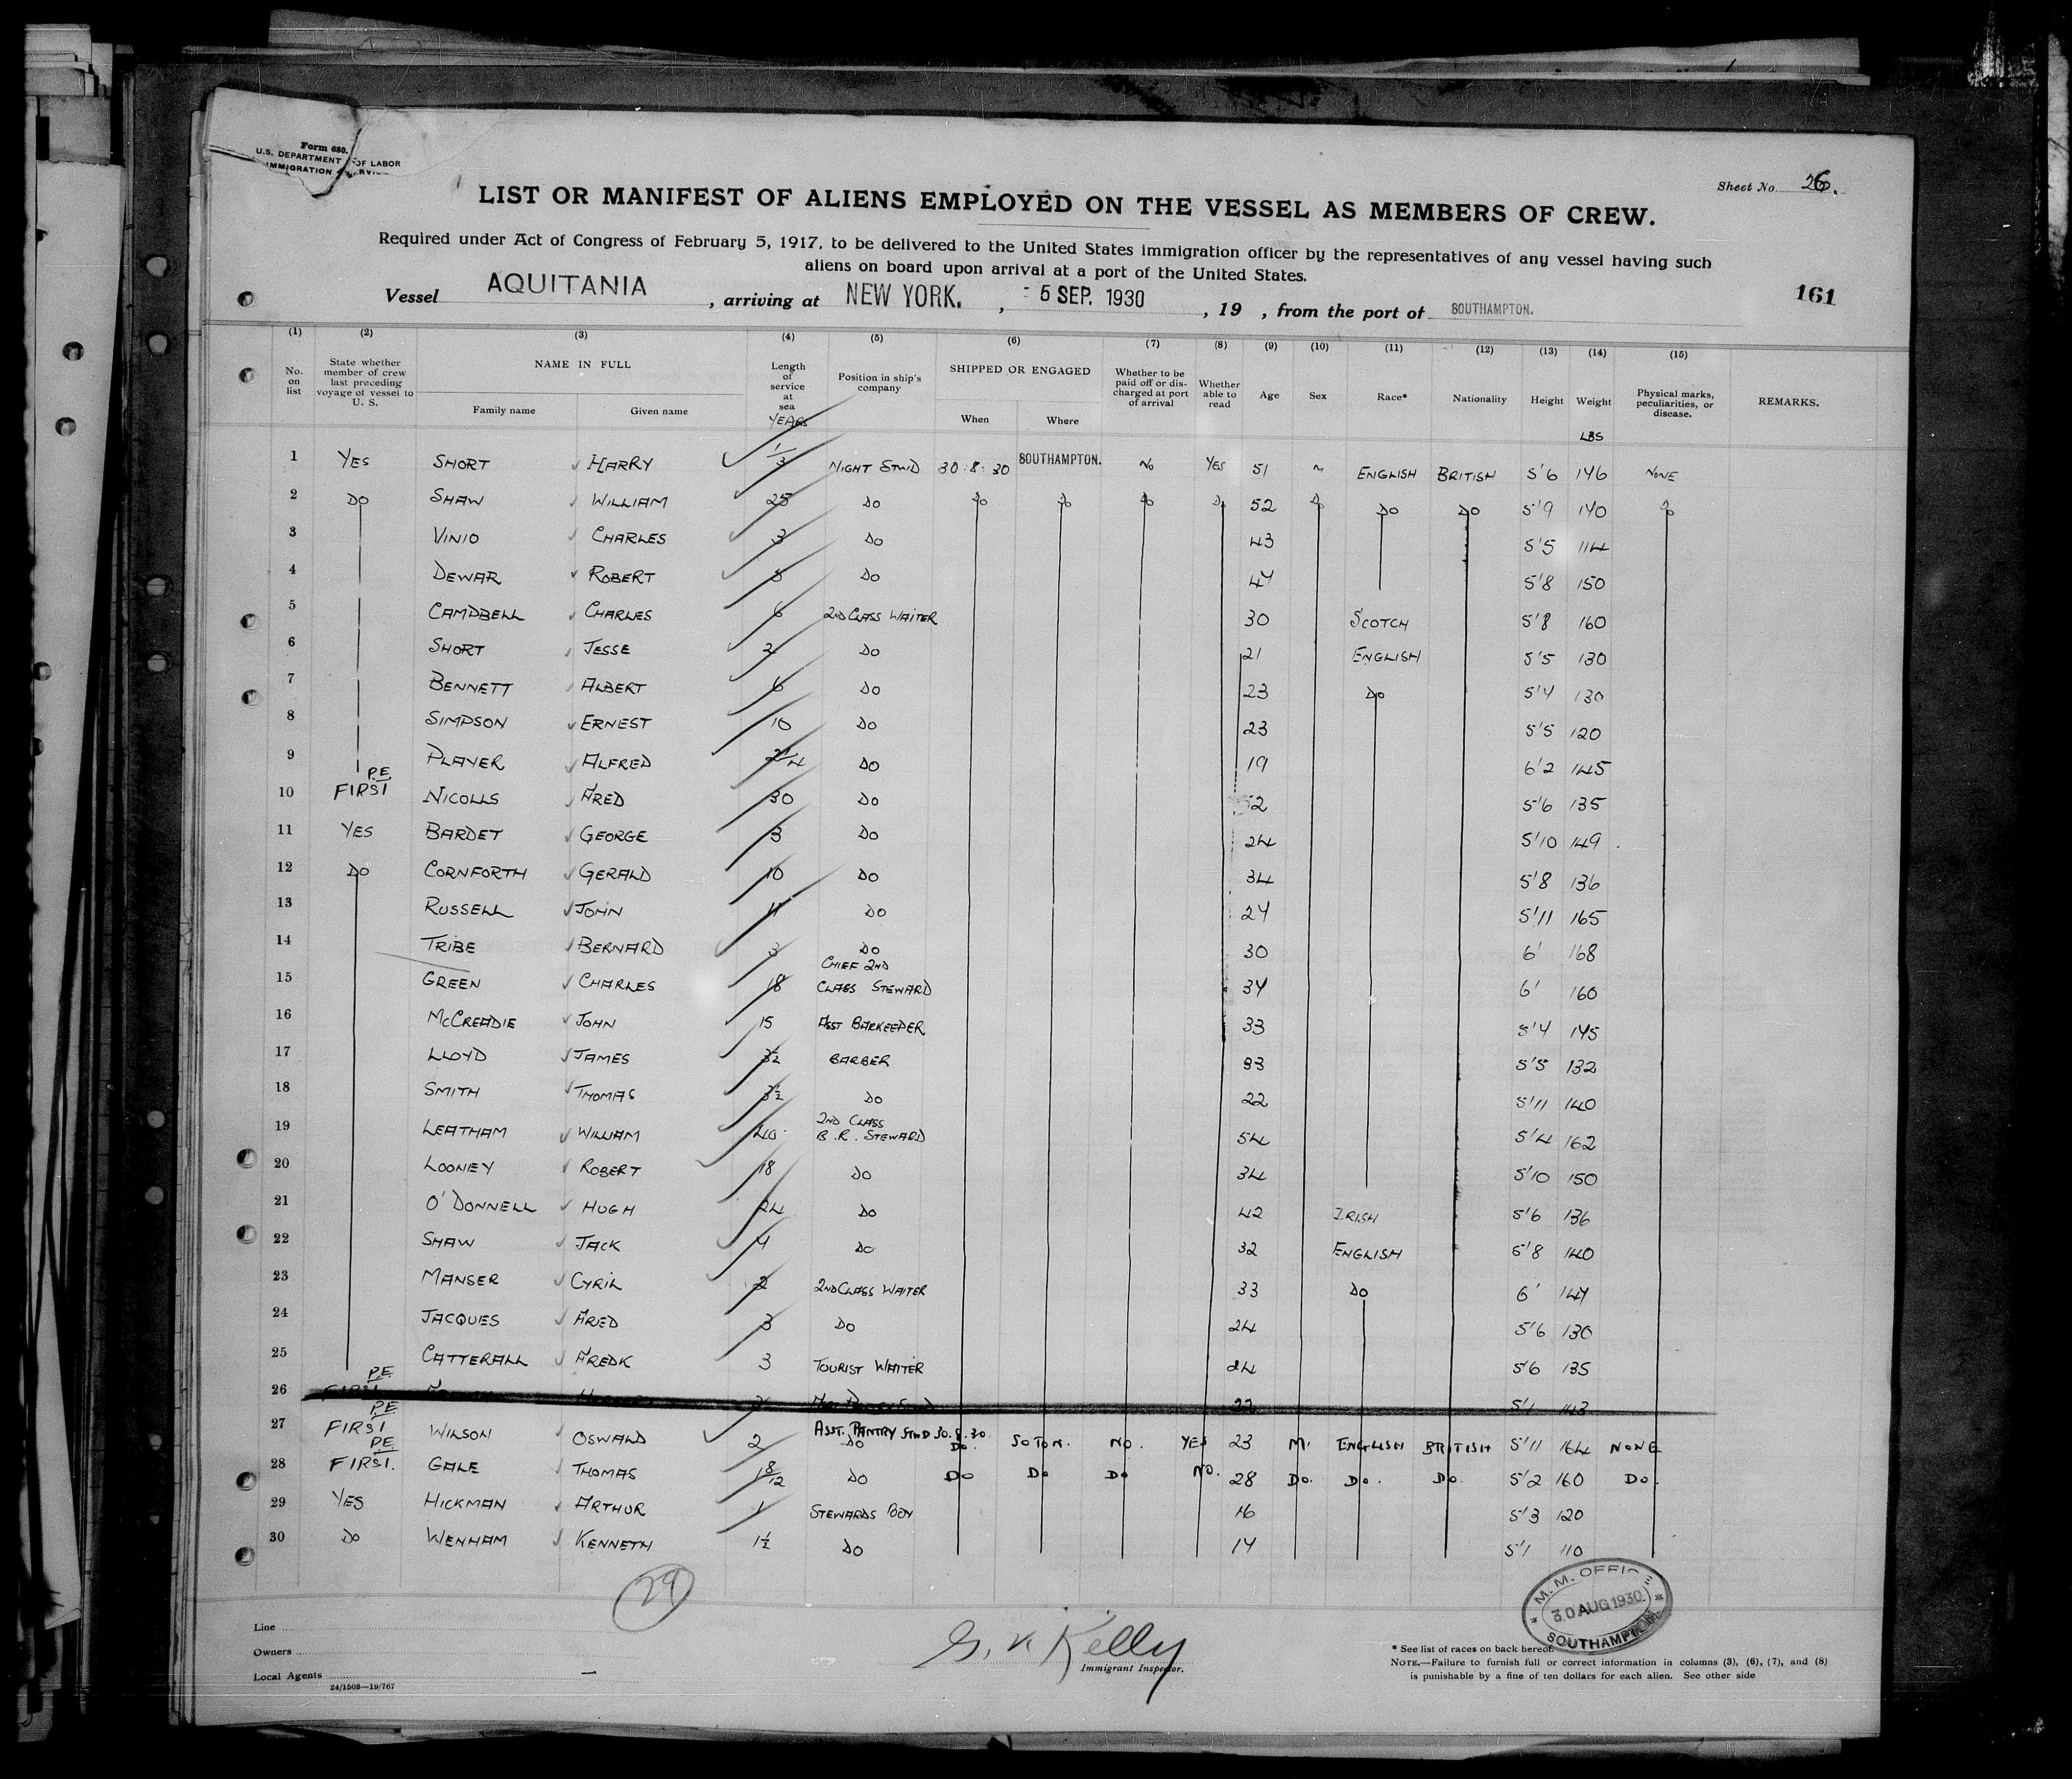 Form 680.
U.S. DEPARTMENT OF LABOR
IMMIGRATION SERVICE
Sheet No. 26.
LIST OR MANIFEST OF ALIENS EMPLOYED ON THE VESSEL AS MEMBERS OF CREW.
Required under Act of Congress of February 5, 1917, to be delivered to the United States immigration officer by the representatives of any vessel having such
aliens on board upon arrival at a port of the United States.
Vessel AQUITANIA, arriving at NEW YORK., 5 SEP. 1930, 19 , from the port of SOUTHAMPTON.
161
(1) (2) (3) (4) (5) (6) (7) (8) (9) (10) (11) (12) (13) (14) (15)
No. on list State whether member of crew last preceding voyage of vessel to U. S. NAME IN FULL Family name Given name Length of service at sea YEARS Position in ship's company SHIPPED OR ENGAGED When Where Whether to be paid off or discharged at port of arrival Whether able to read Age Sex Race* Nationality Height Weight LBS Physical marks, peculiarities, or disease. REMARKS.
1 YES SHORT HARRY 1/3 NIGHT STWD 30.8.30 SOUTHAMPTON. NO YES 51 M ENGLISH BRITISH 5'6 146 NONE
2 DO SHAW WILLIAM 25 DO DO DO DO DO 52 DO DO DO 5'9 140 DO
3 VINIO CHARLES 3 DO 43 5'5 114
4 DEWAR ROBERT DO 47 5'8 150
5 CAMPBELL CHARLES 6 2ND CLASS WAITER 30 SCOTCH 5'8 160
6 SHORT JESSE 2 DO 21 ENGLISH 5'5 130
7 BENNETT ALBERT 6 DO 23 DO 5'4 130
8 SIMPSON ERNEST 10 DO 23 5'5 120
9 PLAYER ALFRED DO 19 6'2 145
10 P.E. FIRST NICOLLS FRED 30 DO 52 5'6 135
11 YES BARDET GEORGE 3 DO 24 5'10 149
12 DO CORNFORTH GERALD 10 DO 34 5'8 136
13 RUSSELL JOHN DO 24 5'11 165
14 TRIBE BERNARD 3 DO 30 6' 168
15 GREEN CHARLES 18 CHIEF 2ND CLASS STEWARD 34 6' 160
16 McCREADIE JOHN 15 ASST BARKEEPER 33 5'4 145
17 LLOYD JAMES 3½ BARBER 33 5'5 132
18 SMITH THOMAS 3½ DO 22 5'11 140
19 LEATHAM WILLIAM 40 2ND CLASS B.R. STEWARD 54 5'4 162
20 LOONEY ROBERT 18 DO 34 5'10 150
21 O'DONNELL HUGH 24 DO 42 IRISH 5'6 136
22 SHAW JACK 4 DO 32 ENGLISH 5'8 140
23 MANSER CYRIL 2 2ND CLASS WAITER 33 DO 6' 147
24 JACQUES FRED 3 DO 24 5'6 130
25 CATTERALL FREDK 3 TOURIST WAITER 24 5'6 135
26 P.E. FIRST 22 5'1 143
27 P.E. FIRST WILSON OSWALD 2 ASST. PANTRY STWD 30.8.30 DO DO. SOTON. NO. YES 23 M. ENGLISH BRITISH 5'11 164 NONE
28 P.E. FIRST. GALE THOMAS 8/12 DO DO DO DO NO. 28 DO. DO. DO. 5'2 160 DO.
29 YES HICKMAN ARTHUR 1 STEWARDS BOY 16 5'3 120
30 DO WENHAM KENNETH 1½ DO 17 5'1 110
29
Line
Owners
Local Agents
24/1503—19/767
G. V. Kelly
Immigrant Inspector.
M.M. OFFICE
30 AUG 1930
SOUTHAMPTON
* See list of races on back hereof.
NOTE.—Failure to furnish full or correct information in columns (3), (6), (7), and (8)
is punishable by a fine of ten dollars for each alien. See other side